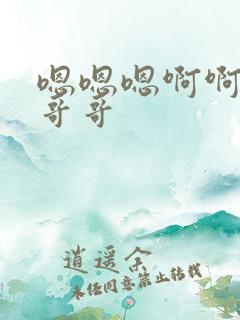 嗯嗯嗯啊啊
哥哥
逍遥余
未经同意禁止转载